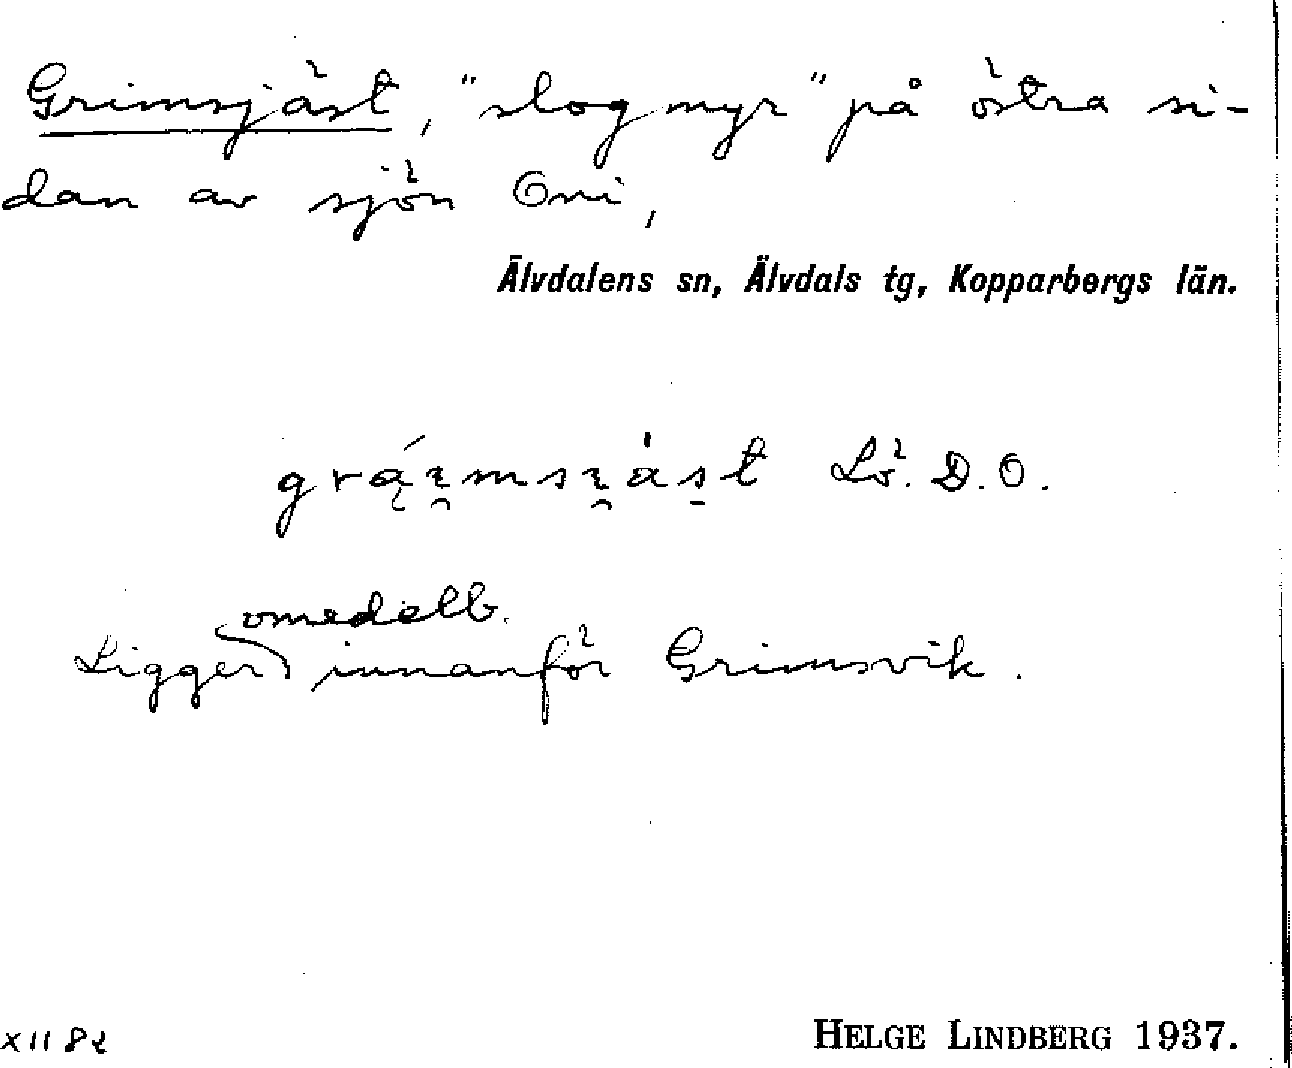 Grimsjäst, "slogmyr" på östra si-
dan av sjön Oni,
Älvdalens sn, Älvdals tg, Kopparbergs län.
Lö. D.O.
omedelb.
Ligger innanför Grimsvik.
XII 82
HELGE LINDBERG 1937.